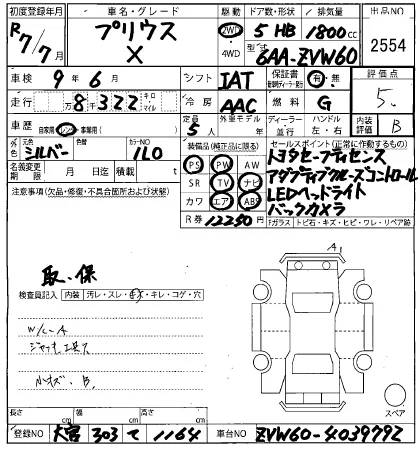 初度登録年月 車名・グレード 駆動 ドア数・形状 排気量 出品NO
R7/7月 プリウス X 2WD 4WD 5 HB 1800cc 2554
型式 6AA-ZVW60
車検 9年6月 シフト IAT 保証書 有・無 評価点
走行 万8千322 キロ マイル 冷房 AAC 燃料 G 5.
車歴 自家用・レンタ・事業用( ) 定員 5人 外車モデル 年 ディーラー・並行 ハンドル 左・右 内装評価 B
元色 シルバー 色 カラーNO 1L0 装備品(純正品に限る) セールスポイント(正常に作動するもの)
名義変更期限 月 日 積載 t PS PW AW トヨタセーフティセンス
注意事項(欠品・修復・不具合箇所および状態) SR TV ナビ アダプティブクルーズコントロール
カワ エアB ABS LEDヘッドライト
R券 12250円 バックカメラ
Fガラス トビ石・キズ・ヒビ・ワレ・リペア跡
取・保 A1
検査員記入 内装 汚レ・スレ・キズ・キレ・コゲ・穴
W/C-A
ジャッキ工具ス
小キズ B
スペア
長さ cm 幅 cm 高さ cm
登録NO 大宮 303 て 1164 車台NO ZVW60-4039792